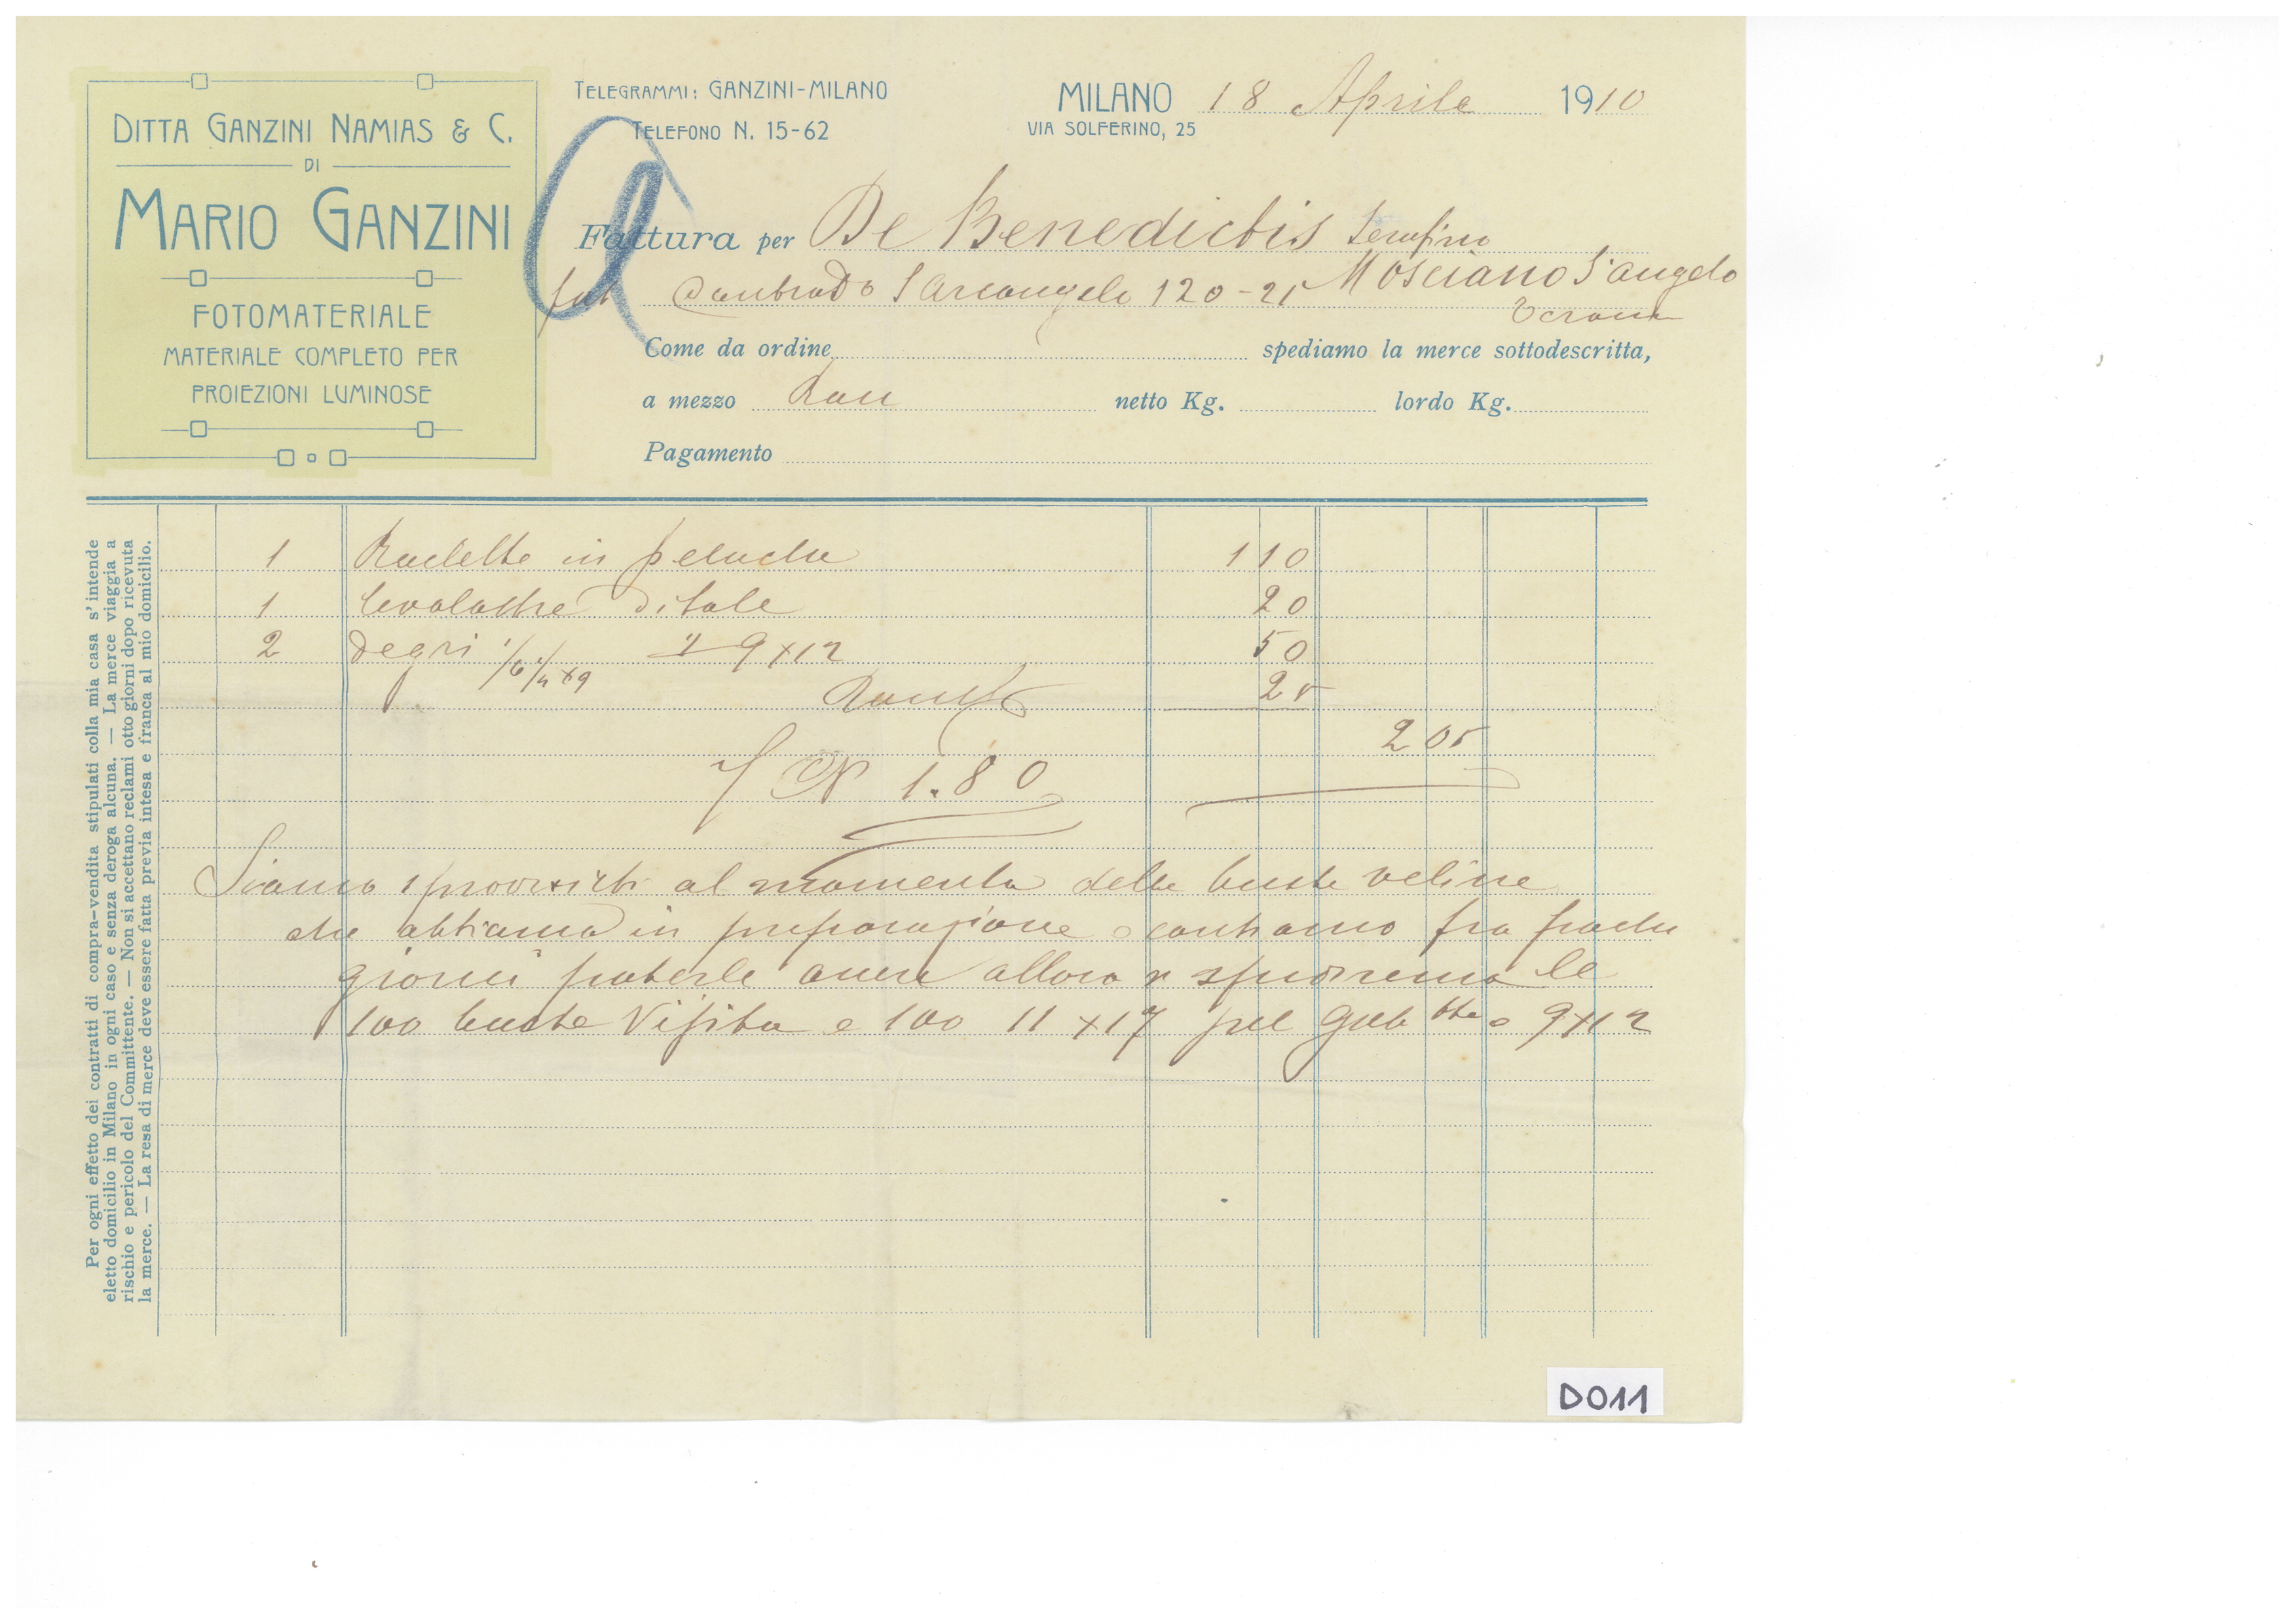 DITTA GANZINI NAMIAS & C.
DI
MARIO GANZINI
FOTOMATERIALE
MATERIALE COMPLETO PER
PROIEZIONI LUMINOSE
TELEGRAMMI: GANZINI-MILANO
TELEFONO N. 15-62
MILANO 18 Aprile 1910
VIA SOLFERINO, 25
Fattura per De Benedictis Serafino
Contrada S Arcangelo 120-21 Mosciano S. Angelo
Teramo
Come da ordine spediamo la merce sottodescritta,
a mezzo Racc netto Kg. lordo Kg.
Pagamento
1 Raclette in peluche 110
1 levalastre ditale 20
2 degri 1/6 1/4 x 9 9x12 50
25
205
1.80
Siamo sprovvisti al momento delle buste veline
che abbiamo in preparazione e contiamo fra pochi
giorni poterle avere allora vi spediremo le
100 buste Visita e 100 11x17 pel 9x12
Per ogni effetto dei contratti di compra-vendita stipulati colla mia casa s'intende
eletto domicilio in Milano in ogni caso e senza deroga alcuna. — La merce viaggia a
rischio e pericolo del Committente. — Non si accettano reclami otto giorni dopo ricevuta
la merce. — La resa di merce deve essere fatta previa intesa e franca al mio domicilio.
D011